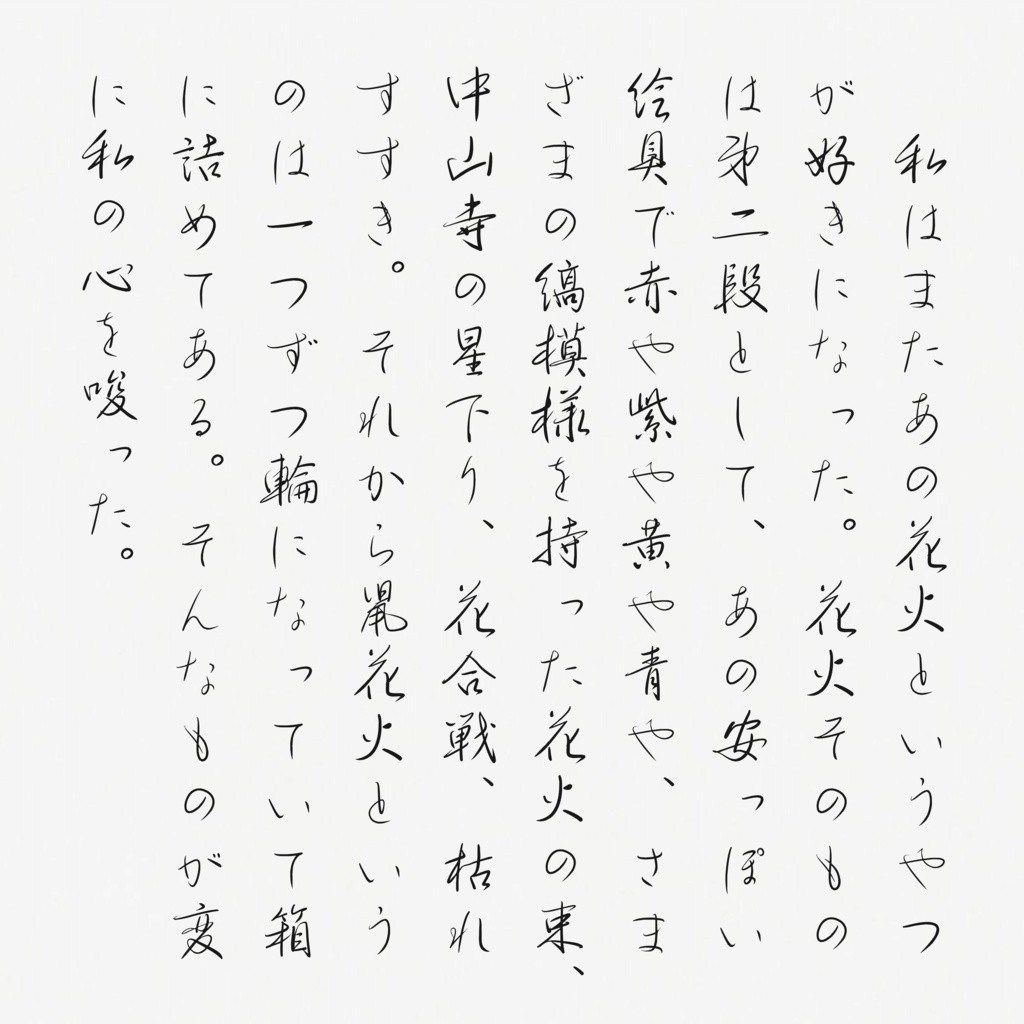 私はまたあの花火というやつ
が好きになった。花火そのもの
は第二段として、あの安っぽい
絵具で赤や紫や黄や青や、さま
ざまの縞模様を持った花火の束、
中山寺の星下り、花合戦、枯れ
すすき。それから鼠花火という
のは一つずつ輪になっていて箱
に詰めてある。そんなものが変
に私の心を唆った。